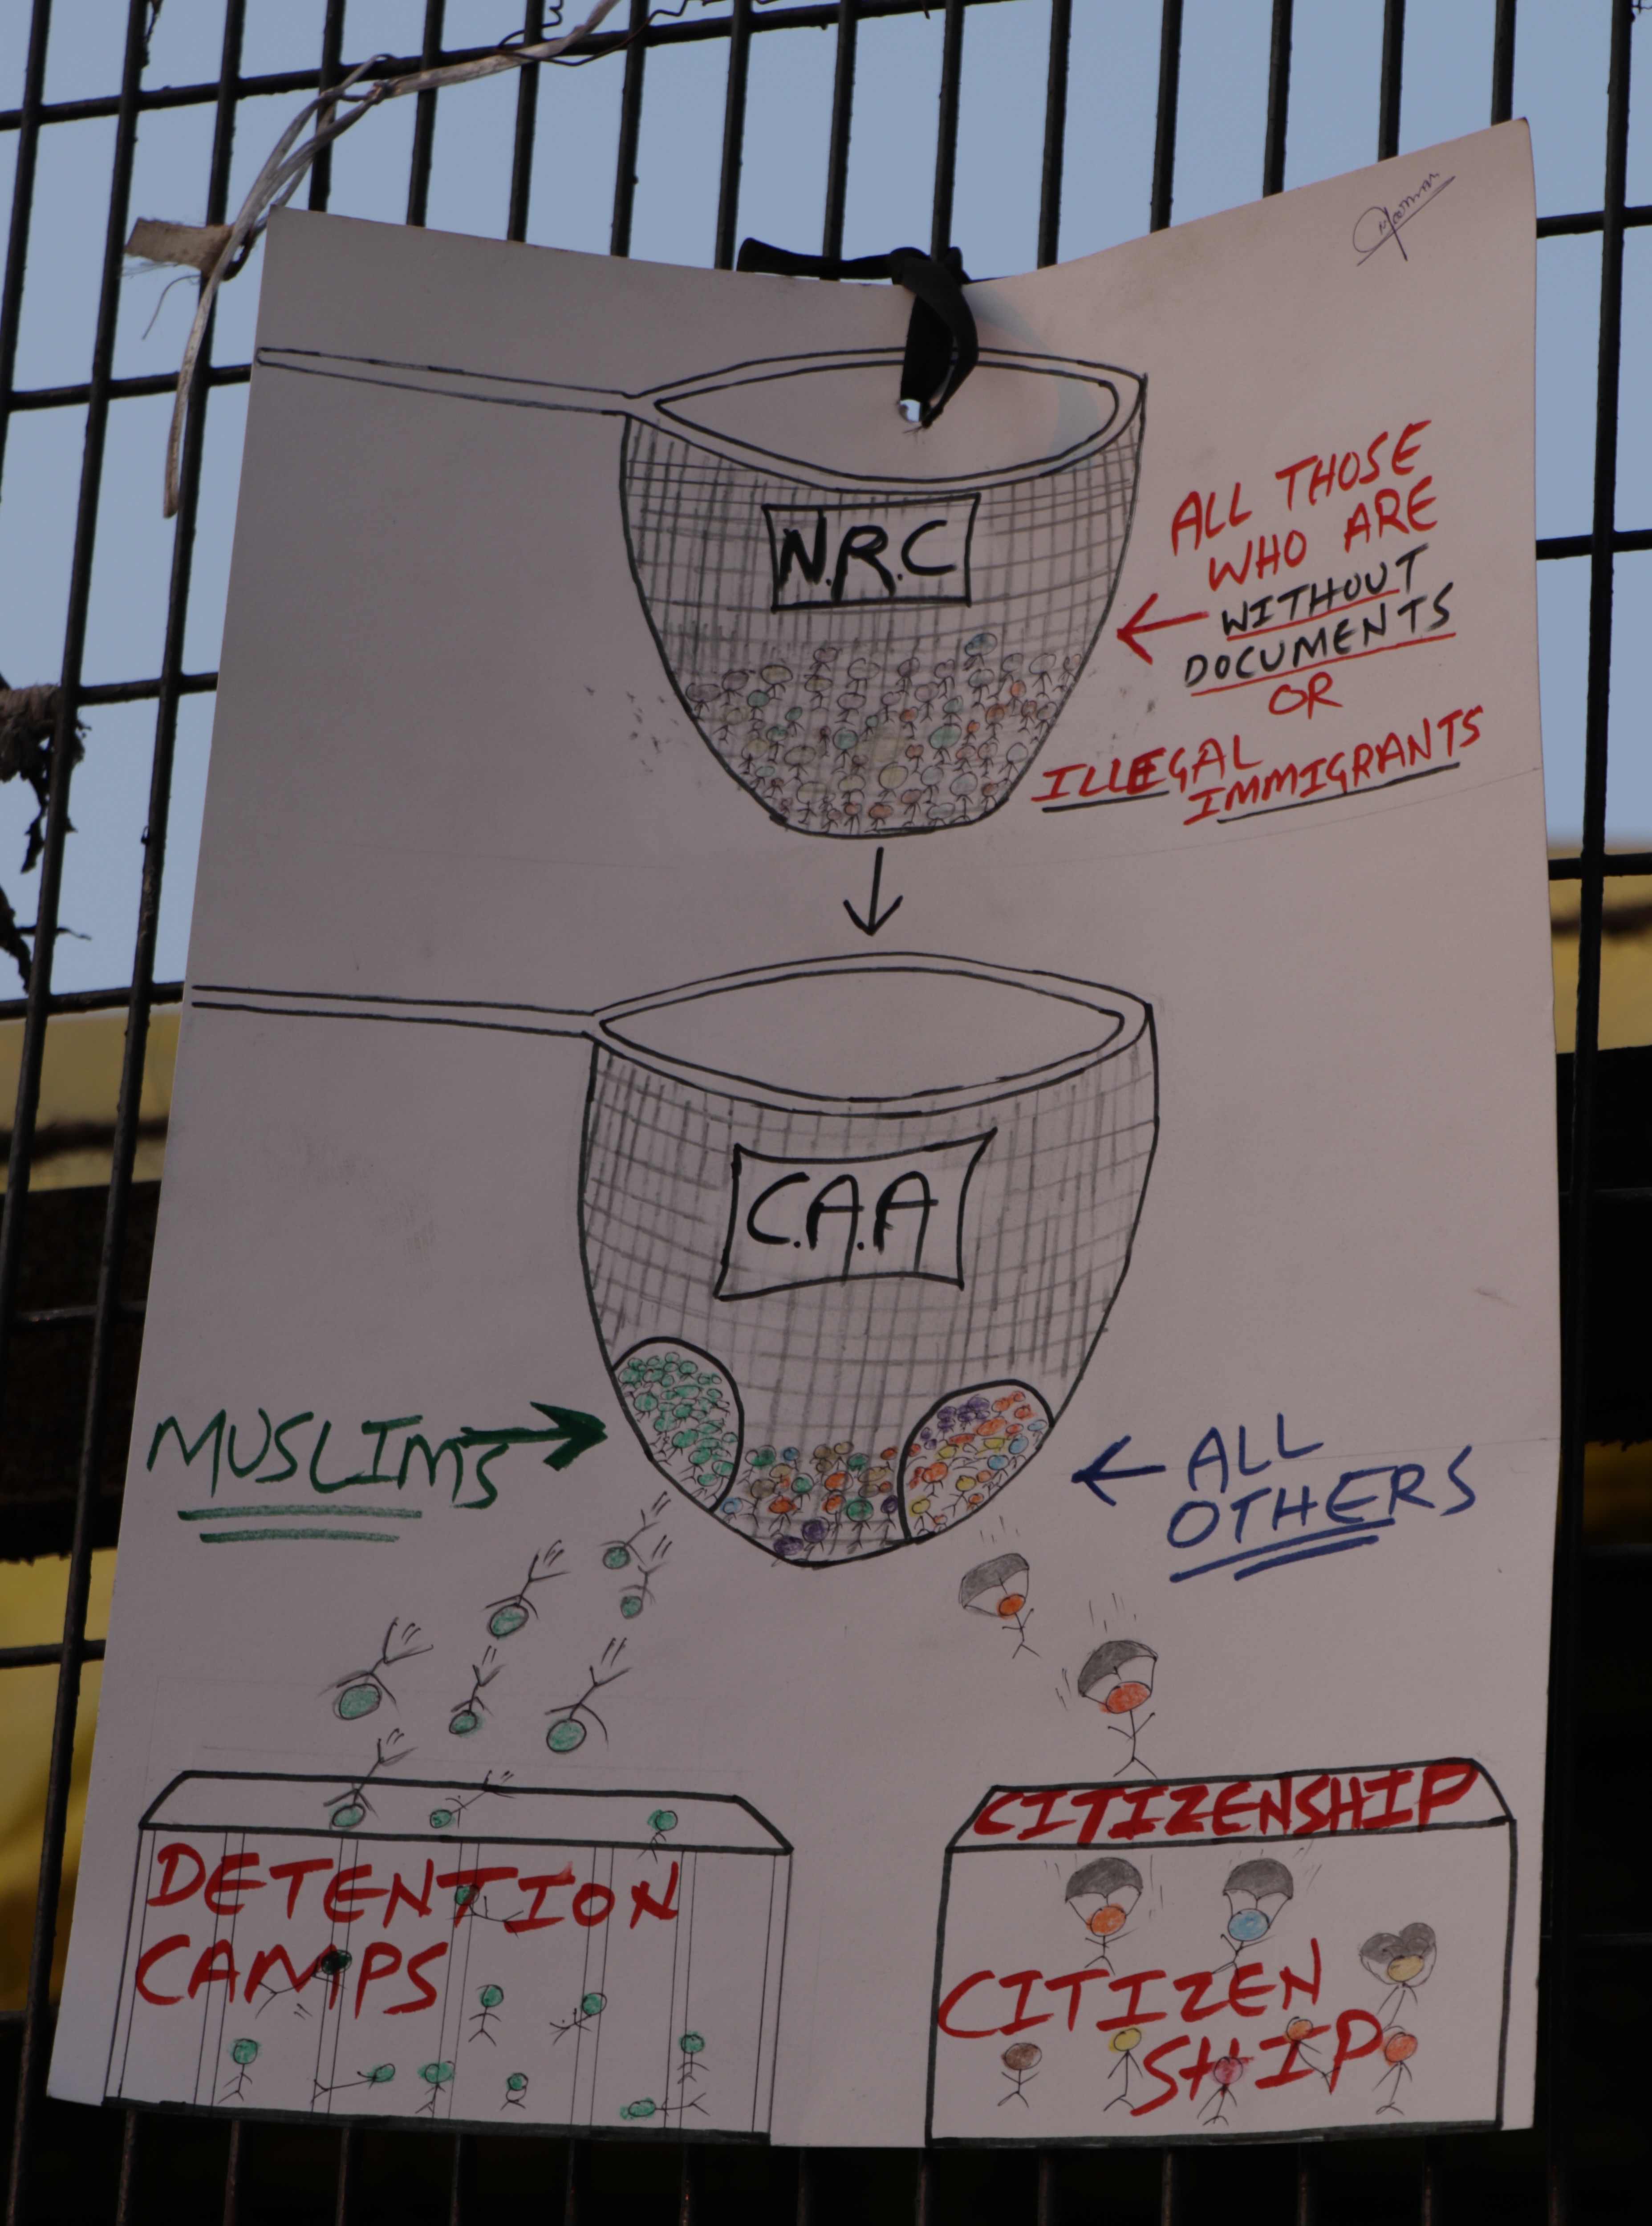 N.R.C
ALL THOSE
WHO ARE
WITHOUT
DOCUMENTS
OR
ILLEGAL
IMMIGRANTS
C.A.A
MUSLIMS
ALL
OTHERS
DETENTION
CAMPS
CITIZENSHIP
CITIZEN
SHIP